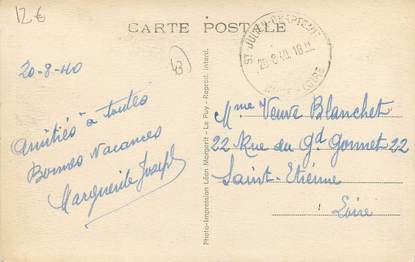 12 €
CARTE POSTALE
20-8-40
43
20-8 40 18 H
LOIRE
Amitiés à toutes
Bonnes Vacances
Marguerite Joseph
Mme Veuve Blanchet
22 Rue du Gd Gonnet 22
Saint-Etienne
Loire
Photo-Impression Léon Margerit - Le Puy - Reprod. interd.